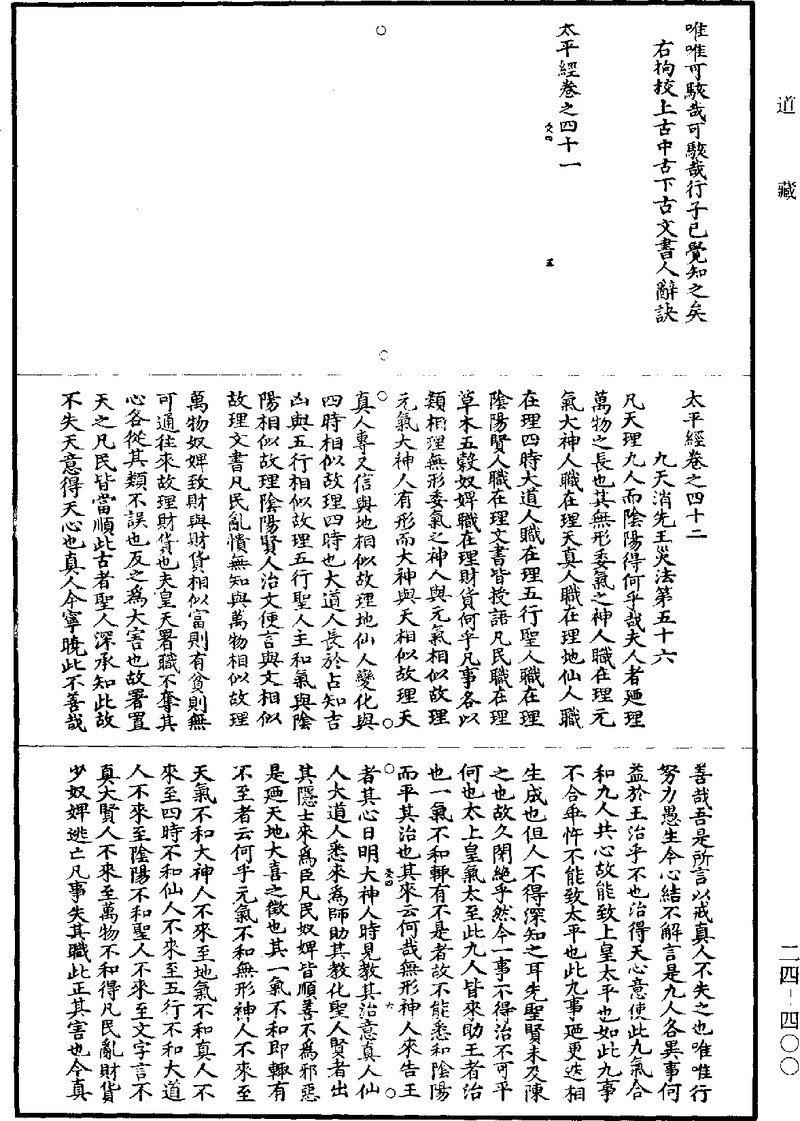 道藏
唯唯可駭哉可駭哉行子已覺知之矣
右拘校上古中古下古文書人辭訣
太平經卷之四十一
五
太平經卷之四十二
九天消先王災法第五十六
凡天理九人而陰陽得何乎哉夫人者迺理
萬物之長也其無形委氣之神人職在理元
氣大神人職在理天真人職在理地仙人職
在理四時大道人職在理五行聖人職在理
陰陽賢人職在理文書皆授語凡民職在理
草木五穀奴婢職在理財貨何乎凡事各以
類相理無形委氣之神人與元氣相似故理
元氣大神人有形而大神與天相似故理天
真人專又信與地相似故理地仙人變化與
四時相似故理四時也大道人長於占知吉
凶與五行相似故理五行聖人主和氣與陰
陽相似故理陰陽賢人治文便言與文相似
故理文書凡民亂憒無知與萬物相似故理
萬物奴婢致財與財貨相似富則有貧則無
可通往來故理財貨也夫皇天署職不奪其
心各從其類不誤也反之為大害也故署置
天之凡民皆當順此古者聖人深承知此故
不失天意得天心也真人今寧曉此不善哉
善哉吾是所言以戒真人不失之也唯唯行
努力愚生今心結不解言是九人各異事何
益於王治乎不也治得天心意使此九氣合
和九人共心故能致上皇太平也如此九事
不合乖忤不能致太平也此九事迺更迭相
生成也但人不得深知之耳先聖賢未及陳
之也故久閉絕乎然今一事不得治不可平
何也太上皇氣太至此九人皆來助王者治
也一氣不和輒有不是者故不能悉和陰陽
而平其治也其來云何哉無形神人來告王
者其心日明大神人時見教其治意真人仙
六
人大道人悉來為師助其教化聖人賢者出
其隱士來為臣凡民奴婢皆順善不為邪惡
是迺天地大喜之徵也其一氣不和即輒有
不至者云何乎元氣不和無形神人不來至
天氣不和大神人不來至地氣不和真人不
來至四時不和仙人不來至五行不和大道
人不來至陰陽不和聖人不來至文字言不
真大賢人不來至萬物不和得凡民亂財貨
少奴婢逃亡凡事失其職此正其害也今真
二四-四〇〇